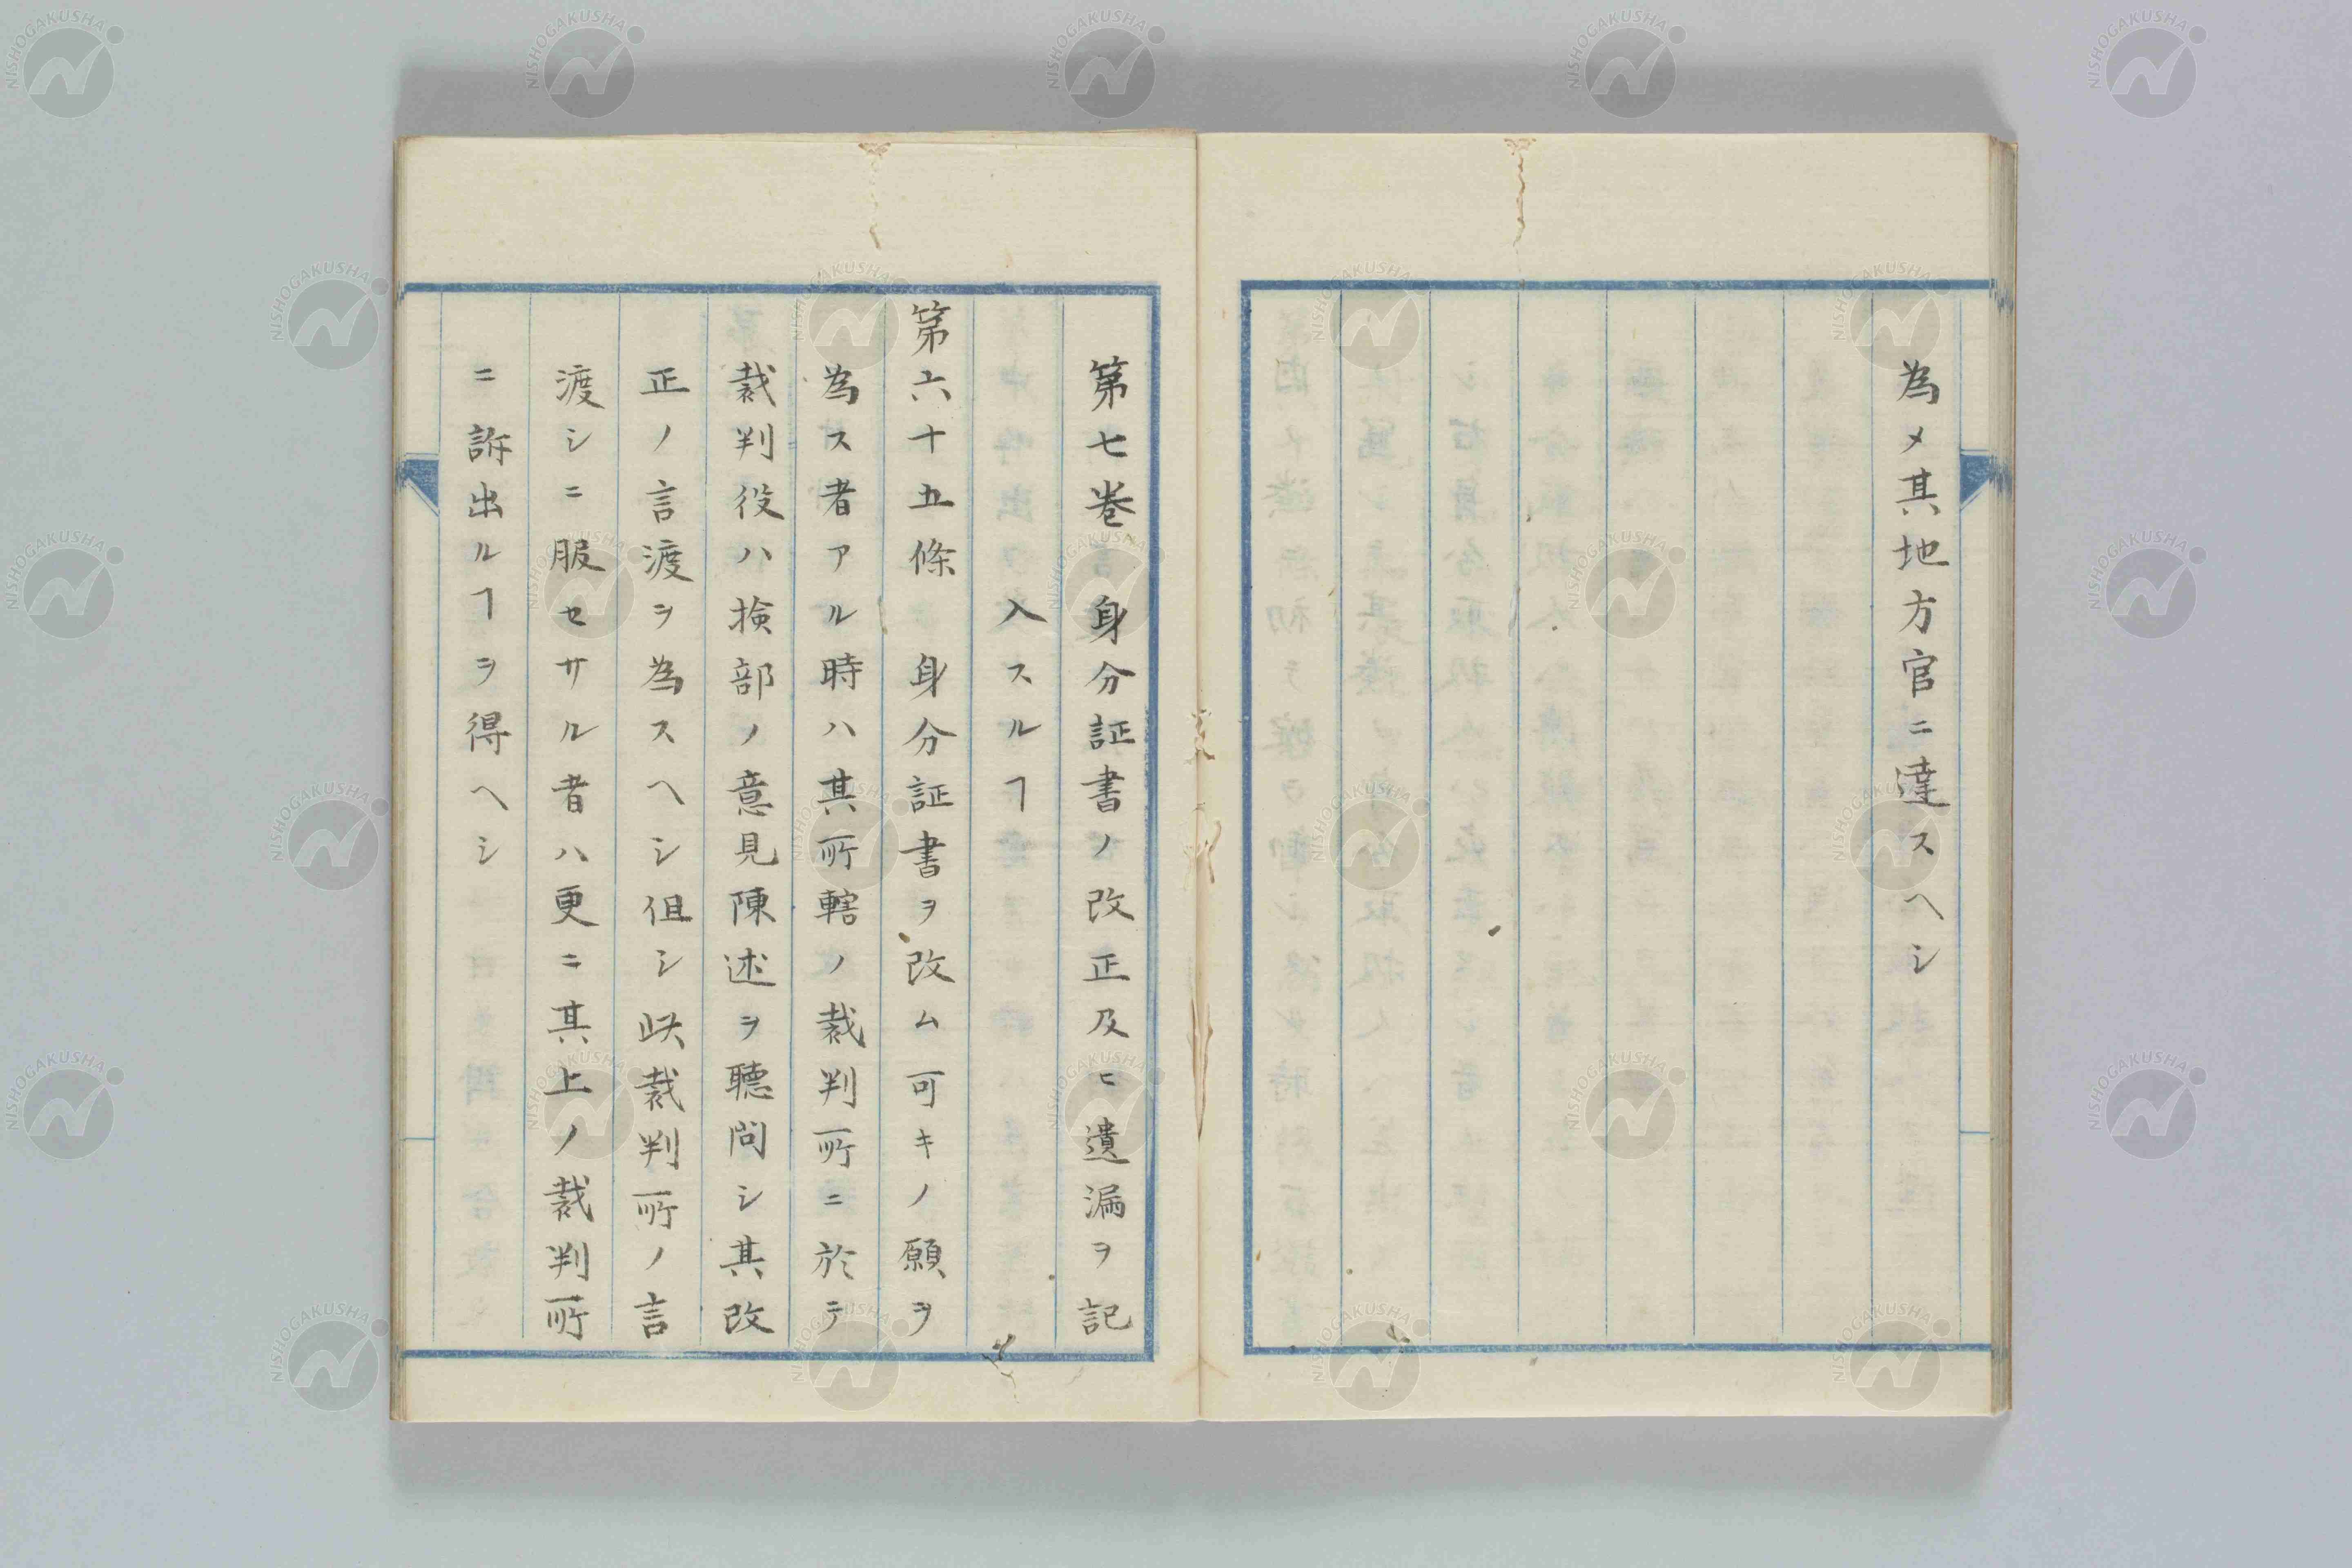 為メ其地方官ニ達スヘシ
第七巻身分証書ノ改正及ヒ遺漏ヲ記
入スルヿ
第六十五條 身分証書ヲ改ム可キノ願ヲ
為ス者アル時ハ其所轄ノ裁判所ニ於テ
裁判役ハ検部ノ意見陳述ヲ聴問シ其改
正ノ言渡ヲ為スヘシ但シ此裁判所ノ言
渡シニ服セサル者ハ更ニ其上ノ裁判所
ニ訴出ルヿヲ得ヘシ
NISHOGAKUSHA